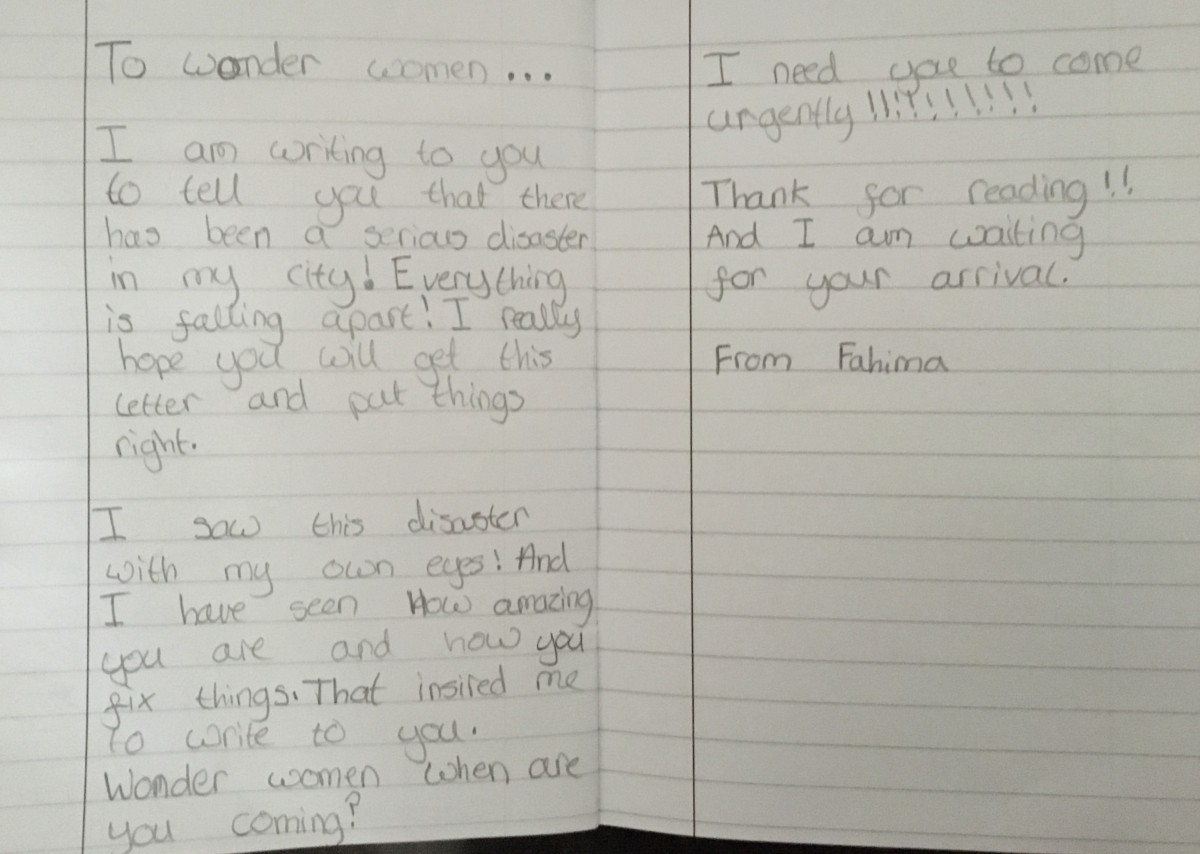 To wonder women...
I am writing to you
to tell you that there
has been a serious disaster
in my city! Everything
is falling apart! I really
hope you will get this
letter and put things
right.
I saw this disaster
with my own eyes! And
I have seen How amazing
you are and how you
fix things. That insired me
to write to you.
Wonder women when are
you coming?
I need you to come
urgently!!!?!!!!!!
Thank for reading!!
And I am waiting
for your arrival.
From Fahima